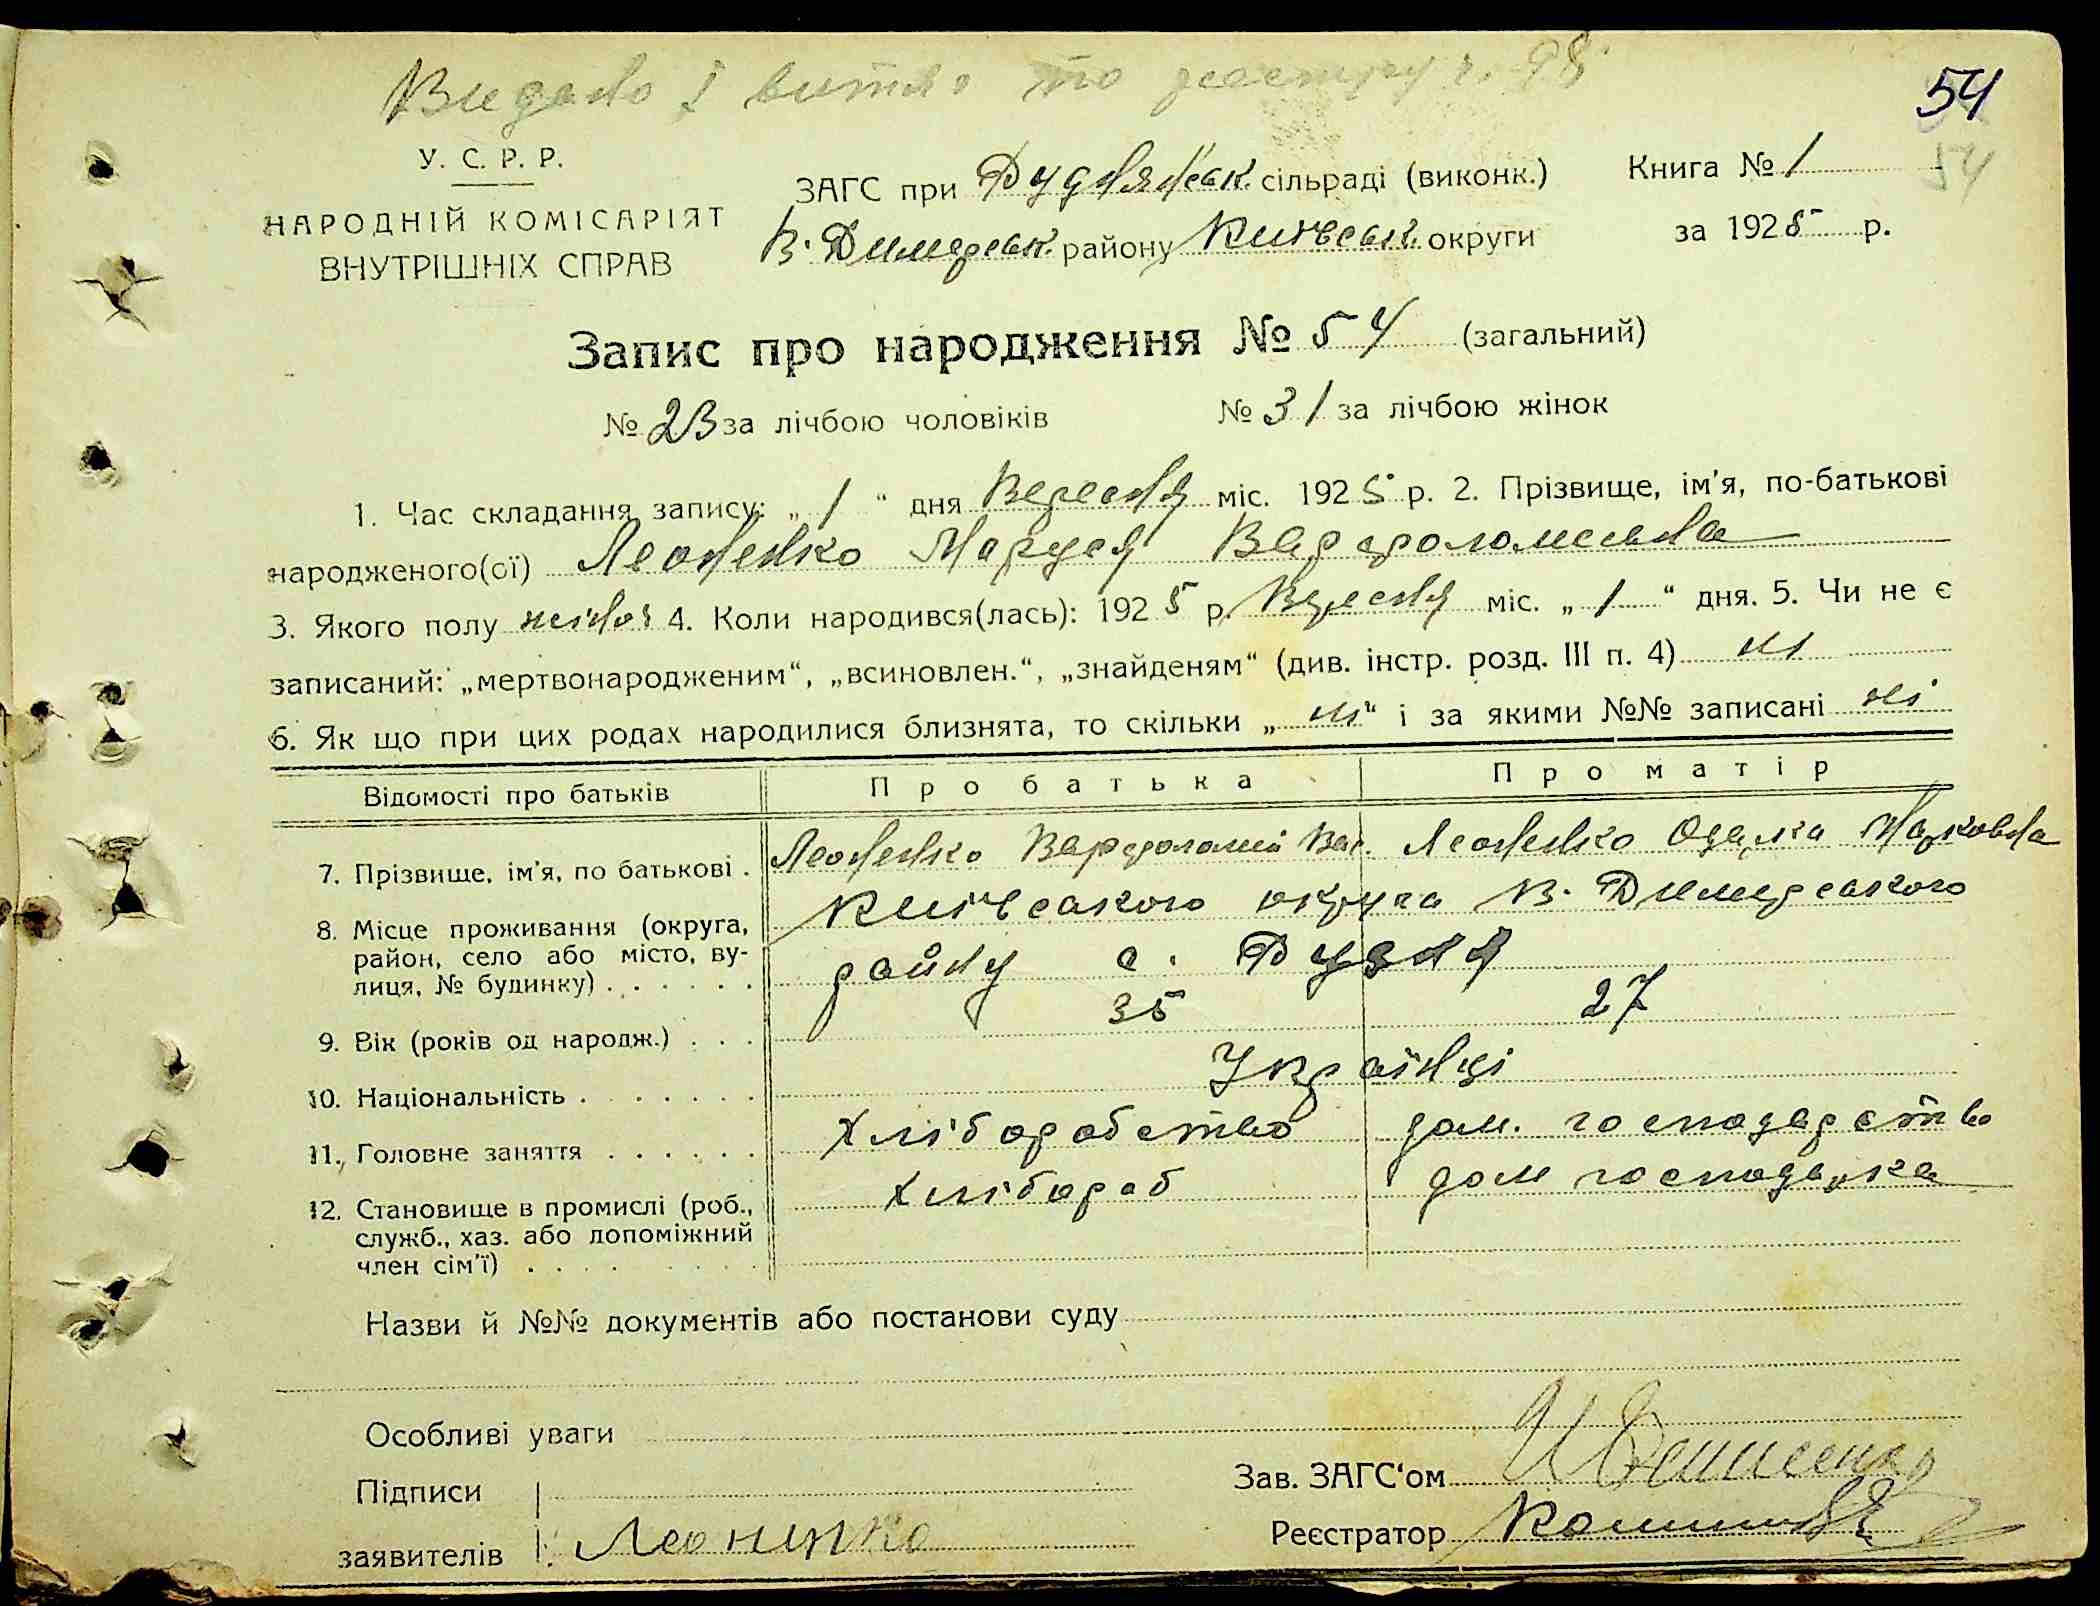 Видано 1 витяг по реєстру ч. 98
54
54
У. С. Р. Р.
НАРОДНІЙ КОМІСАРІЯТ
ВНУТРІШНІХ СПРАВ
ЗАГС при Руднянськ. сільраді (виконк.)
В. Димерськ. району Київськ. округи
Книга № 1
за 1925 р.
Запис про народження № 54 (загальний)
№ 23 за лічбою чоловіків № 31 за лічбою жінок
1. Час складання запису: „ 1 “ дня Вересня міс. 1925 р. 2. Прізвище, ім'я, по-батькові
народженого(ої) Леоненко Маруся Вархоломеєвна
3. Якого полу жіноч 4. Коли народився(лась): 1925 р. Вересня міс. „ 1 “ дня. 5. Чи не є
записаний: „мертвонародженим“, „всиновлен.“, „знайденям“ (див. інстр. розд. III п. 4) ні
6. Як що при цих родах народилися близнята, то скільки „ ні “ і за якими №№ записані ні
Відомості про батьків Про батька Про матір
7. Прізвище, ім'я, по батькові . Леоненко Вас. Леоненко Одарка Марковна
8. Місце проживання (округа, район, село або місто, вулиця, № будинку) . . . . . . Київського округа В. Димерського
району с. Рудня
9. Вік (років од народж.) . . . 35 27
10. Національність . . . . . . . Українці
11. Головне заняття . . . . . . Хліборобство дом. господарство
12. Становище в промислі (роб., служб., хаз. або допоміжний член сім'ї) . . . . Хлібороб дом господарка
Назви й №№ документів або постанови суду
Особливі уваги
Підписи
заявителів Леоненко
Зав. ЗАГС'ом Денисенко
Реєстратор